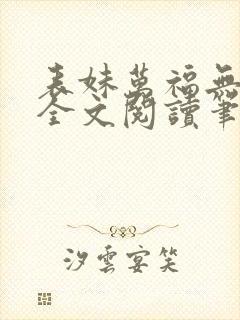 表妹萬福無
全文閱讀筆
汐雲宴笑